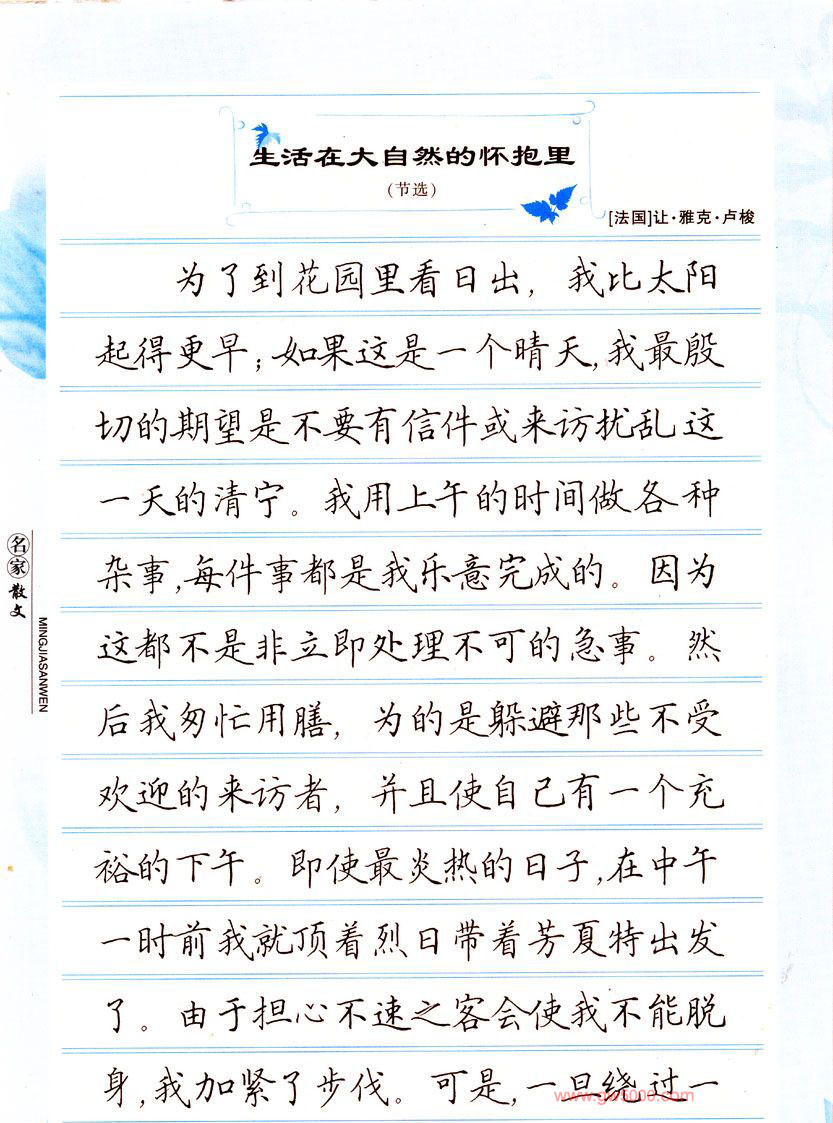 生活在大自然的怀抱里
(节选)
[法国]让·雅克·卢梭
为了到花园里看日出，我比太阳
起得更早；如果这是一个晴天，我最殷
切的期望是不要有信件或来访扰乱这
一天的清宁。我用上午的时间做各种
杂事，每件事都是我乐意完成的。因为
这都不是非立即处理不可的急事。然
后我匆忙用膳，为的是躲避那些不受
欢迎的来访者，并且使自己有一个充
裕的下午。即使最炎热的日子，在中午
一时前我就顶着烈日带着芳夏特出发
了。由于担心不速之客会使我不能脱
身，我加紧了步伐。可是，一旦绕过一
名家散文
MINGJIASANWEN
www.gw5000.com